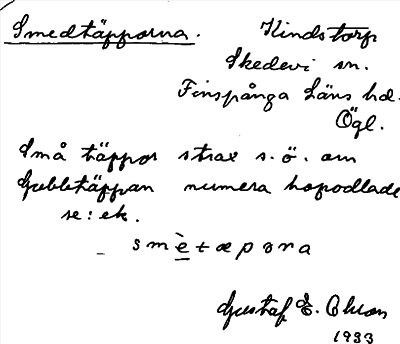 Smedtäpporna. Kindstorp
Skedevi sn.
Finspånga Läns hd.
Ögl.
Små täppor strax s.ö. om
Gubbtäppan numera hopodlade
se: ek.
- smètæpørna
Gustaf E. Ohlson
1933